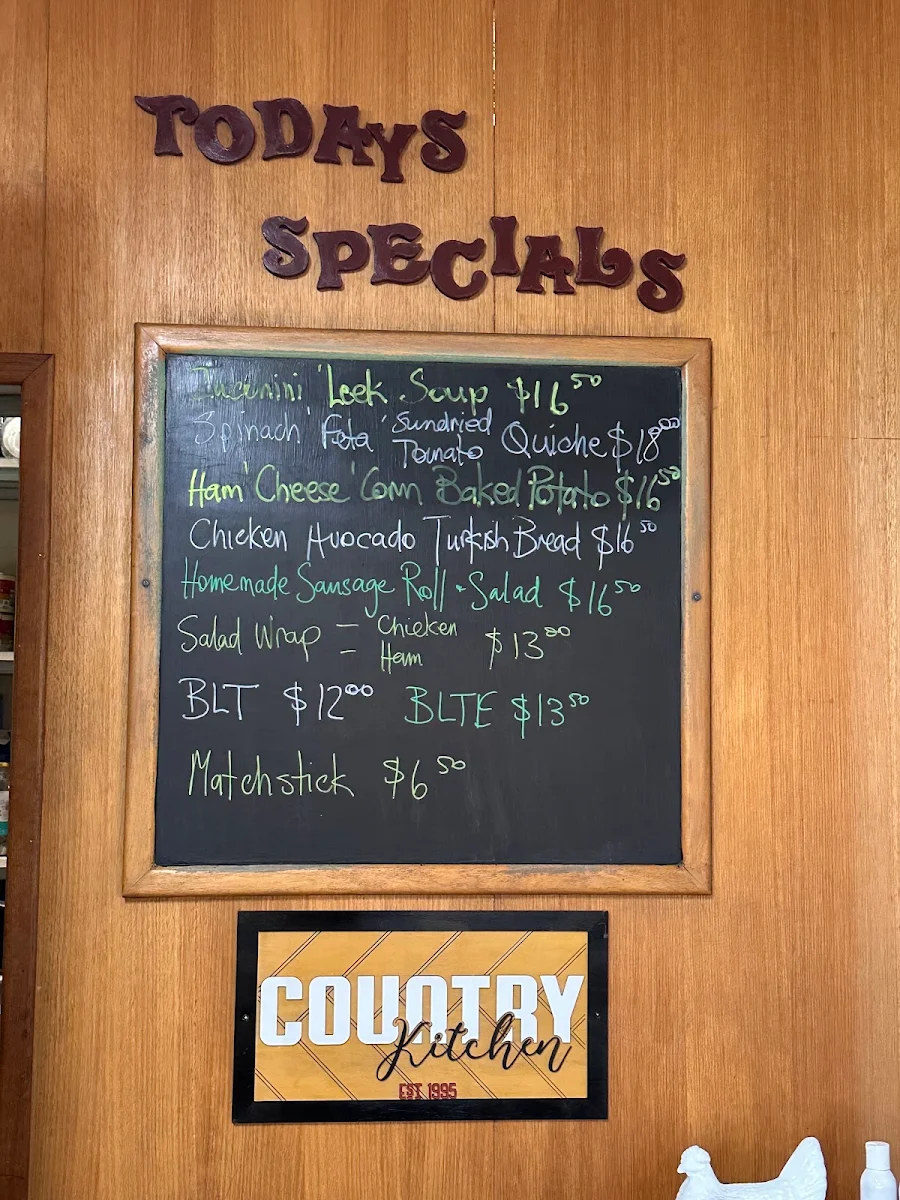 TODAYS
SPECIALS
Zuccnini 'Leek Soup $16.50
Spinach' Feta 'Sundried Tomato Quiche $18.00
Ham 'Cheese' Corn Baked Potato $16.50
Chicken Avocado Turkish Bread $16.50
Homemade Sausage Roll • Salad $16.50
Salad Wrap – Chicken $13.00
– Ham
BLT $12.00 BLTE $13.50
Matchstick $6.50
COUNTRY
Kitchen
EST 1995